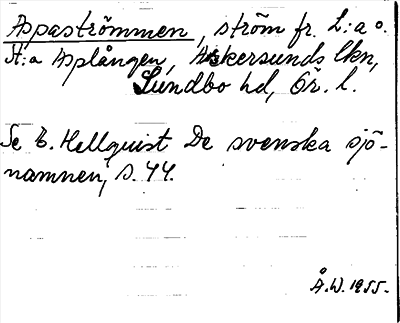 Aspaströmmen, ström fr. L:a o.
St:a Asplången, Askersunds lkn,
Sundbo hd, Ör. l.
Se E. Hellquist De svenska sjö-
namnen, s. 44.
Å.W. 1955.